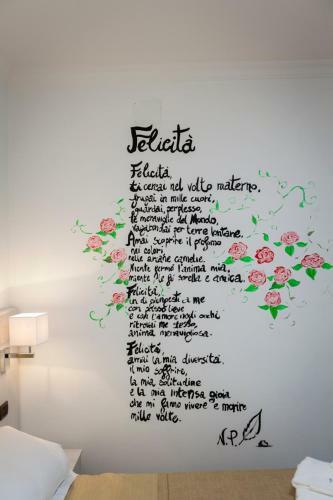 Felicità
Felicità,
ti cercai nel volto materno.
frugai in mille cuori,
guardai, perplesso,
le meraviglie del Mondo,
vagabondai per terre lontane.
Amai scoprire il profumo
nei colori
nelle anziane camelie.
Niente fermò l'anima mia,
niente che fu sorella e amica.
Felicità,
in di piumpesti a me
con passo lieve
e con l'amore negli occhi
ritrovai me stesso,
anima meravigliosa.
Felicità,
amai la mia diversità.
il mio soffrire,
la mia solitudine
e la mia intensa gioia
che mi fanno vivere e morire
mille volte.
N.P.